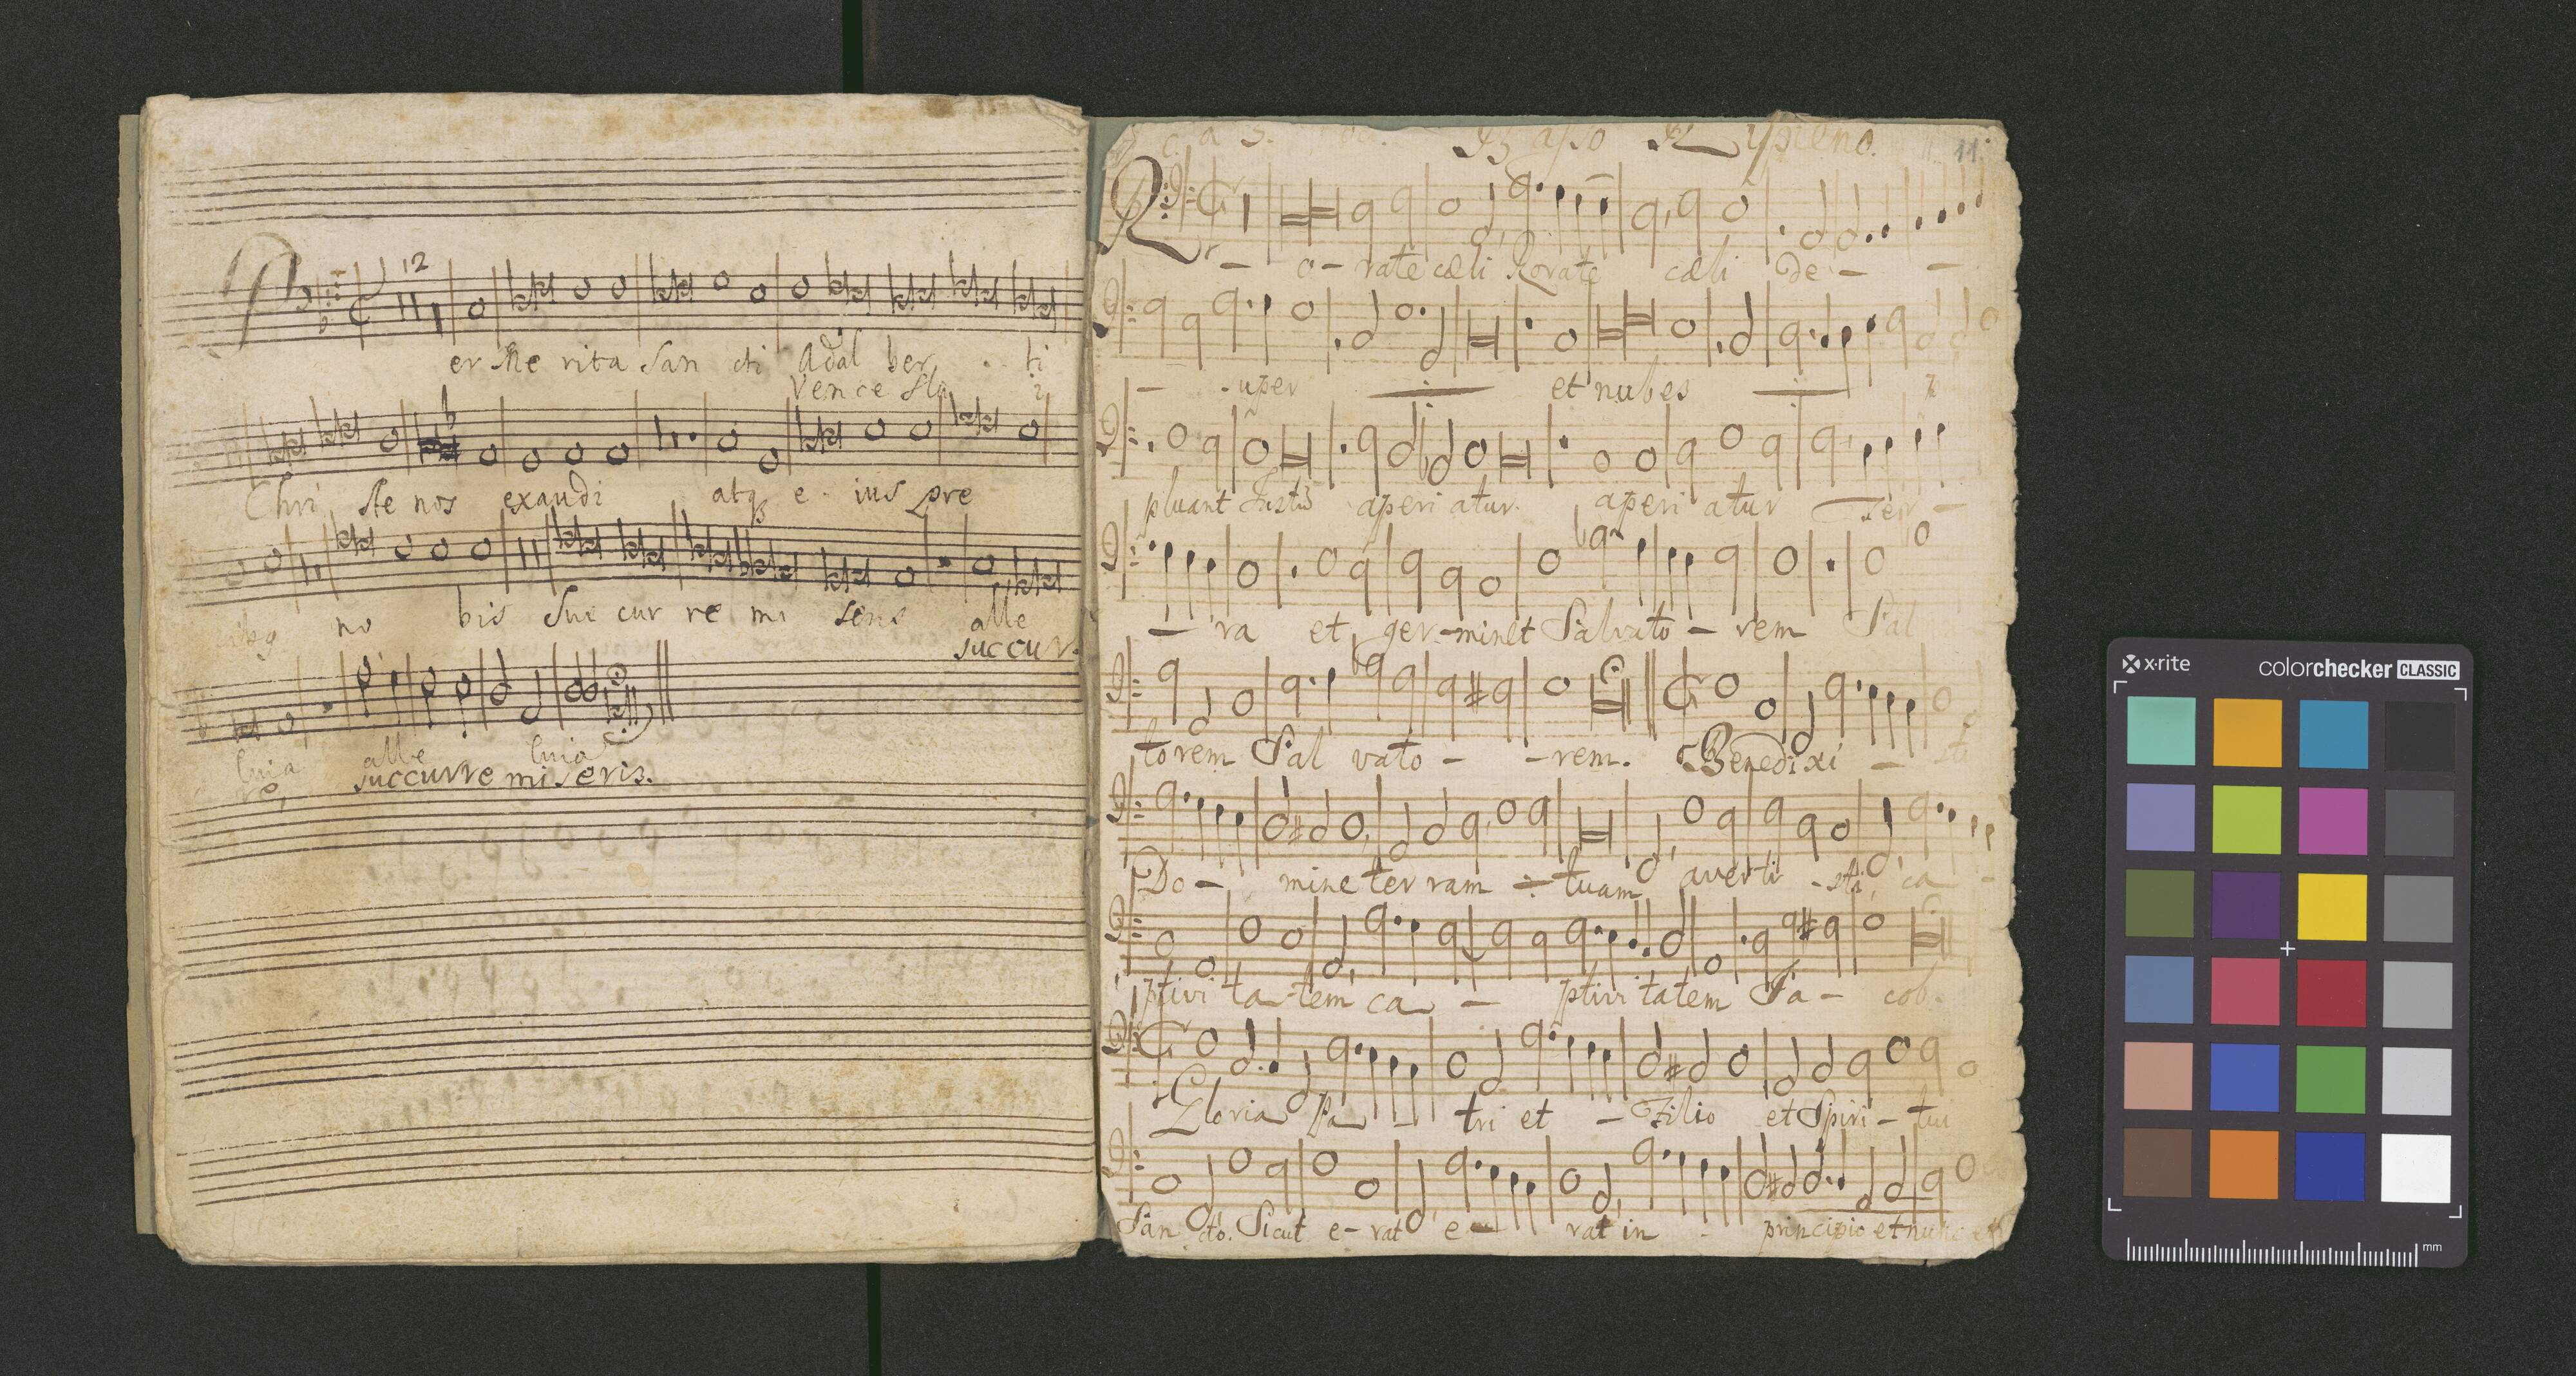 12
er Me rita San cti Adal ber - ti
Vence sla i
Chri ste nos exaudi atq e - ius pre
no bis Suc cur re mi seris alle
succur-
luia alle luia
re, succurre miseris.
a 3. Basso Ripieno. 11.
R - o - rate cæli Rorate cæli De - -
- - uper et nubes
pluant Justu aperi atur. aperi atur Ter -
- ra et ger - minet Salvato - rem Sal
torem Sal vato - - rem. Benedixi - sti
Do - mine terram tuam averti - sti, ca -
ptivi ta - tem ca - ptivi tatem Ja - cob.
Gloria Pa - tri et - Filio et Spiri - tui
San cto. Sicut e - rat e - rat in principio et nunc et
x·rite colorchecker CLASSIC
mm